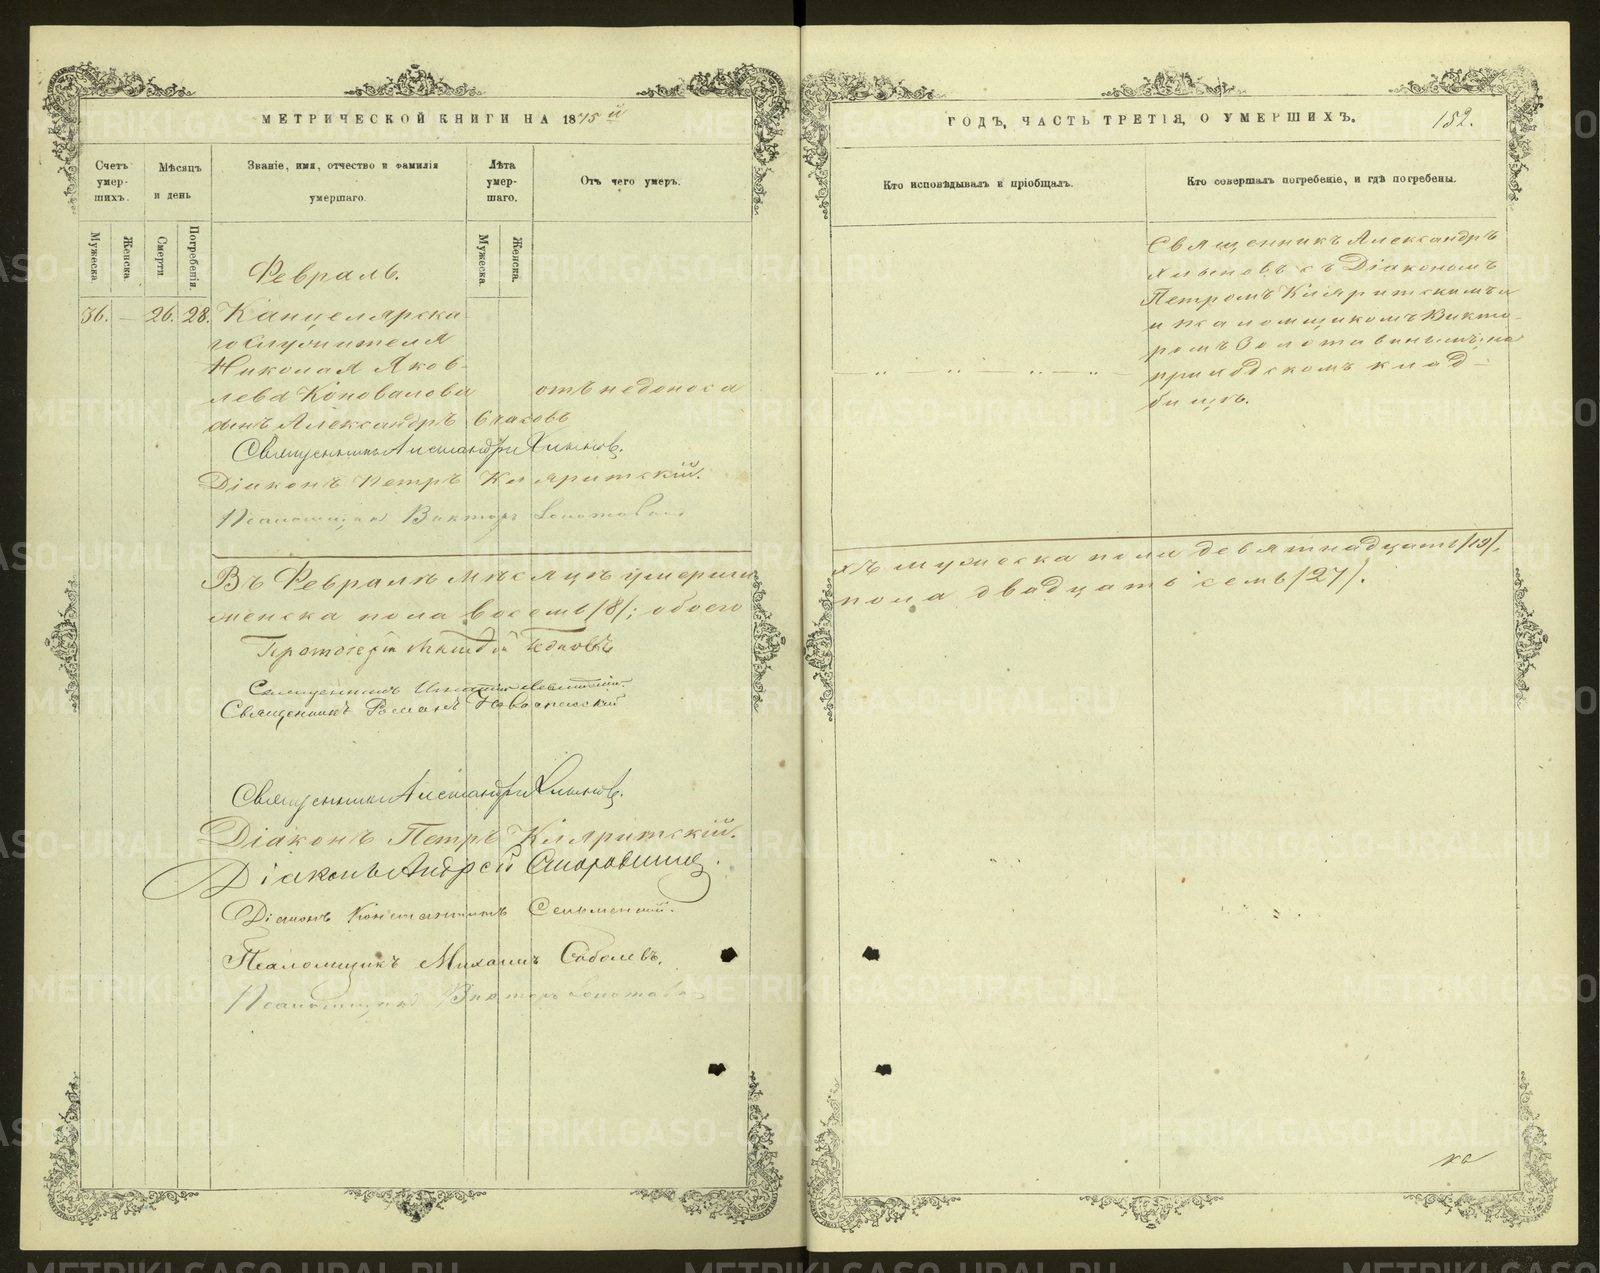 МЕТРИЧЕСКОЙ КНИГИ НА 1875й
Счетъ умер-шихъ.
Мѣсяцъ и день
Званіе, имя, отчество и фамилія умершаго.
Лѣта умер-шаго.
Отъ чего умеръ.
Мужеска.
Женска.
Смерти.
Погребенія.
Мужеска.
Женска.
Февраль.
36. — 26. 28. Канцелярска
го служителя
Николая Яков-
лева Коновалова отъ недоноса
сынъ Александръ 6 часовъ
Священникъ Александръ Хлыновъ.
Діаконъ Петръ Кляритскій.
Псаломщикъ Викторъ
Въ Февралѣ мѣсяцѣ умерши
женска пола восемь /8/; обоего
Протоіерей
Священникъ
Священникъ Романъ
Священникъ Александръ Хлыновъ.
Діаконъ Петръ Кляритскій.
Діаконъ Андрей
Діаконъ Константинъ
Псаломщикъ Михаилъ Соболевъ.
Псаломщикъ Викторъ
ГОДЪ, ЧАСТЬ ТРЕТІЯ, О УМЕРШИХЪ.
152.
Кто исповѣдывалъ и пріобщалъ.
Кто совершалъ погребеніе, и гдѣ погребены.
Священникъ Александръ
Хлыновъ съ Діакономъ
Петромъ Кляритскимъ
и псаломщикомъ Викто-
ромъ Золотавинымъ, на
приходскомъ клад-
бищѣ.
хъ мужеска пола девятнадцать /19/,
пола двадцать семь /27/.
METRIKI.GASO-URAL.RU